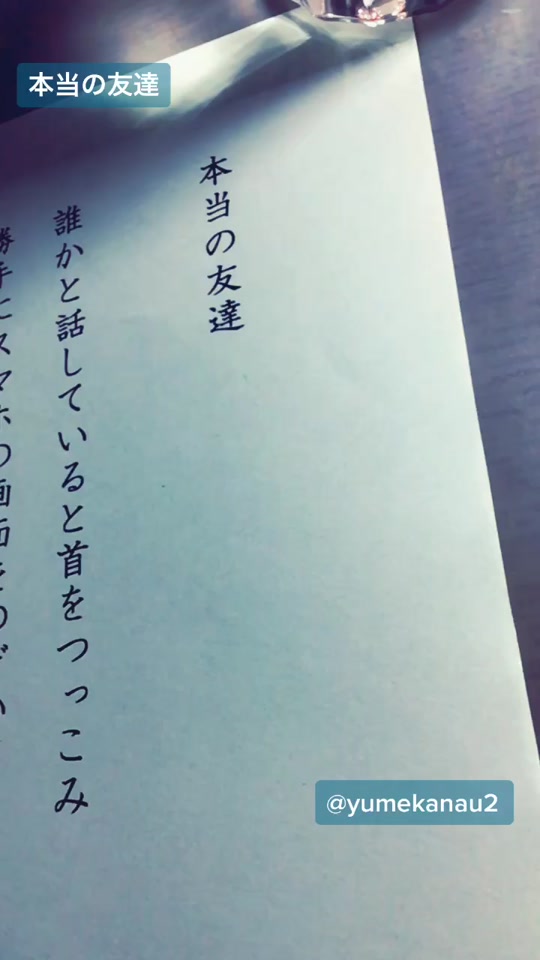 本当の友達
本当の友達
誰かと話していると首をつっこみ
勝手にスマホの画面をのぞい
@yumekanau2